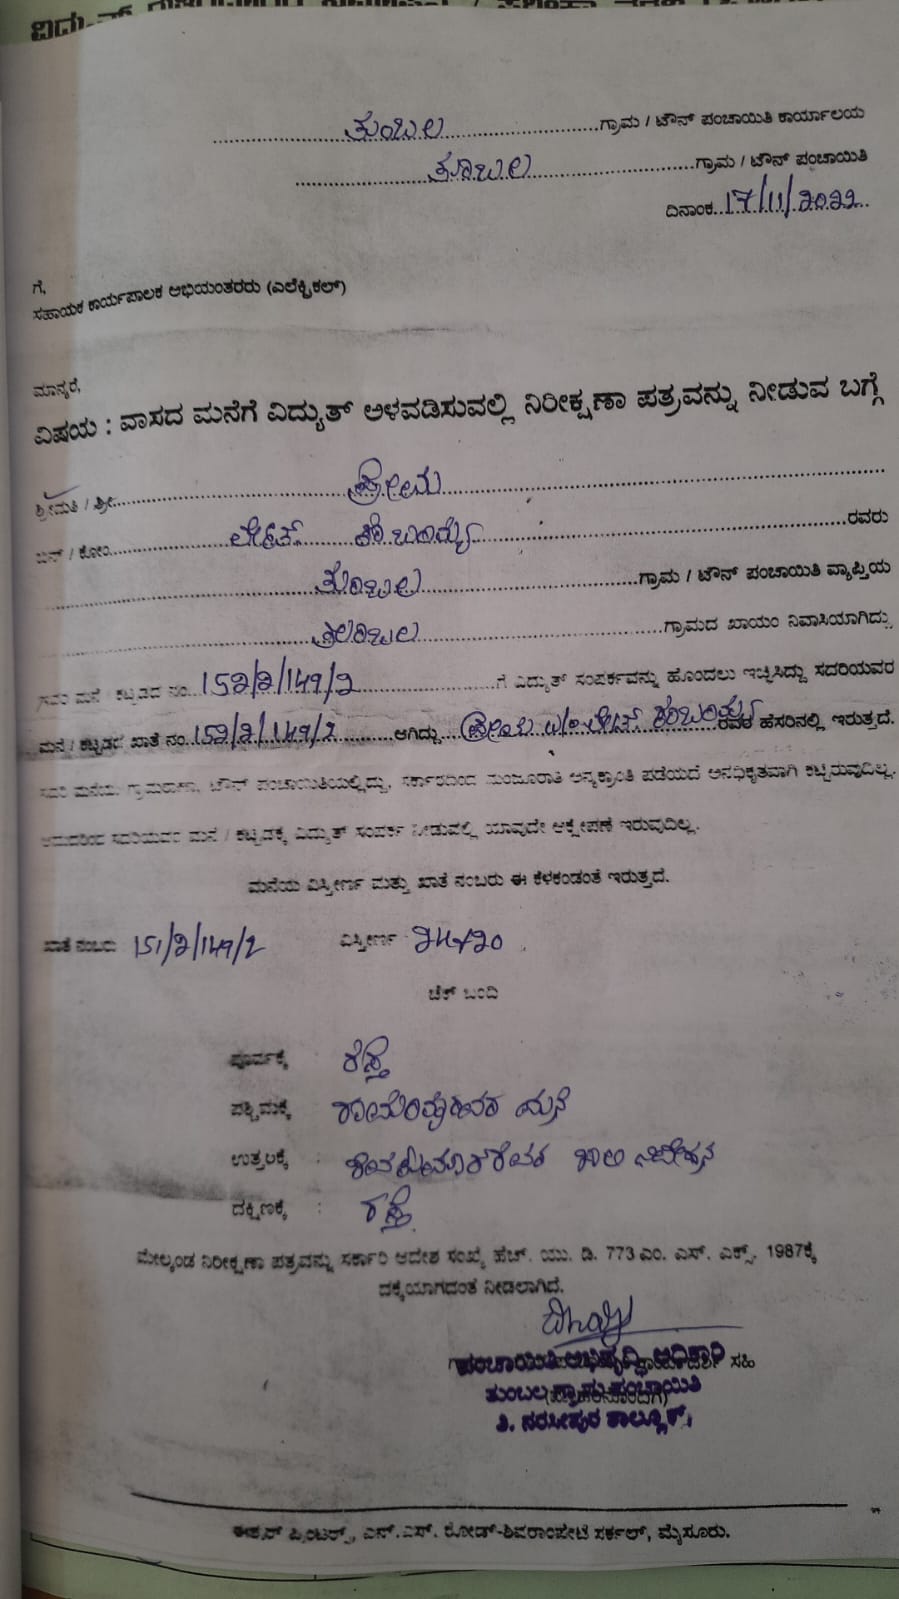 ತುಂಬಲ ಗ್ರಾಮ / ಟೌನ್ ಪಂಚಾಯಿತಿ ಕಾರ್ಯಾಲಯ
ತೂಬಲ ಗ್ರಾಮ / ಟೌನ್ ಪಂಚಾಯಿತಿ
ದಿನಾಂಕ 17/11/2022
ಗೆ,
ಸಹಾಯಕ ಕಾರ್ಯಪಾಲಕ ಅಭಿಯಂತರರು (ಎಲೆಕ್ಟ್ರಿಕಲ್)
ಮಾನ್ಯರೆ,
ವಿಷಯ : ವಾಸದ ಮನೆಗೆ ವಿದ್ಯುತ್ ಅಳವಡಿಸುವಲ್ಲಿ ನಿರೀಕ್ಷಣಾ ಪತ್ರವನ್ನು ನೀಡುವ ಬಗ್ಗೆ
ಶ್ರೀಮತಿ / ಶ್ರೀ. ಪ್ರೇಮ
ಬಿನ್ / ಕೋಂ ಲೇಟ್ ರವರು
ತುಂಬಲ ಗ್ರಾಮ / ಟೌನ್ ಪಂಚಾಯಿತಿ ವ್ಯಾಪ್ತಿಯ
ತುಂಬಲ ಗ್ರಾಮದ ಖಾಯಂ ನಿವಾಸಿಯಾಗಿದ್ದು
ಸದರಿ ಮನೆ / ಕಟ್ಟಡದ ನಂ. 152/2/149/2 ಗೆ ವಿದ್ಯುತ್ ಸಂಪರ್ಕವನ್ನು ಹೊಂದಲು ಇಚ್ಛಿಸಿದ್ದು ಸದರಿಯವರ
ಮನೆ / ಕಟ್ಟಡದ ಖಾತೆ ನಂ. 152/2/149/2 ಆಗಿದ್ದು ಪ್ರೇಮ W/o ಲೇಟ್ ರವರ ಹೆಸರಿನಲ್ಲಿ ಇರುತ್ತದೆ.
ಸದರಿ ಮನೆಯು ಗ್ರಾಮಠಾಣ, ಟೌನ್ ಪಂಚಾಯಿತಿಯಲ್ಲಿದ್ದು, ಸರ್ಕಾರದಿಂದ ಮಂಜೂರಾತಿ ಅನ್ಯಕ್ರಾಂತಿ ಪಡೆಯದೆ ಅನಧಿಕೃತವಾಗಿ ಕಟ್ಟಿರುವುದಿಲ್ಲ.
ಆದುದರಿಂದ ಸದರಿಯವರ ಮನೆ / ಕಟ್ಟಡಕ್ಕೆ ವಿದ್ಯುತ್ ಸಂಪರ್ಕ ನೀಡುವಲ್ಲಿ ಯಾವುದೇ ಆಕ್ಷೇಪಣೆ ಇರುವುದಿಲ್ಲ.
ಮನೆಯ ವಿಸ್ತೀರ್ಣ ಮತ್ತು ಖಾತೆ ನಂಬರು ಈ ಕೆಳಕಂಡಂತೆ ಇರುತ್ತದೆ.
ಖಾತೆ ನಂಬರು 151/2/149/2 ವಿಸ್ತೀರ್ಣ
ಚೆಕ್ ಬಂದಿ
ಪೂರ್ವಕ್ಕೆ ರಸ್ತೆ
ಪಶ್ಚಿಮಕ್ಕೆ ಮನೆ
ಉತ್ತರಕ್ಕೆ : ಖಾಲಿ ನಿವೇಶನ
ದಕ್ಷಿಣಕ್ಕೆ : ರಸ್ತೆ
ಮೇಲ್ಕಂಡ ನಿರೀಕ್ಷಣಾ ಪತ್ರವನ್ನು ಸರ್ಕಾರಿ ಆದೇಶ ಸಂಖ್ಯೆ ಹೆಚ್. ಯು. ಡಿ. 773 ಎಂ. ಎಸ್. ಎಕ್ಸ್. 1987ಕ್ಕೆ
ದಕ್ಕೆಯಾಗದಂತೆ ನೀಡಲಾಗಿದೆ.
ಪಂಚಾಯಿತಿ ಅಭಿವೃದ್ಧಿ ಅಧಿಕಾರಿ ಸಹಿ
ತುಂಬಲ ಗ್ರಾಮ ಪಂಚಾಯಿತಿ
ತಿ. ನರಸೀಪುರ ತಾಲ್ಲೂಕ್.
ಈಶ್ವರ್ ಪ್ರಿಂಟರ್ಸ್, ಎನ್.ಎಸ್. ರೋಡ್-ಶಿವರಾಂಪೇಟೆ ಸರ್ಕಲ್, ಮೈಸೂರು.